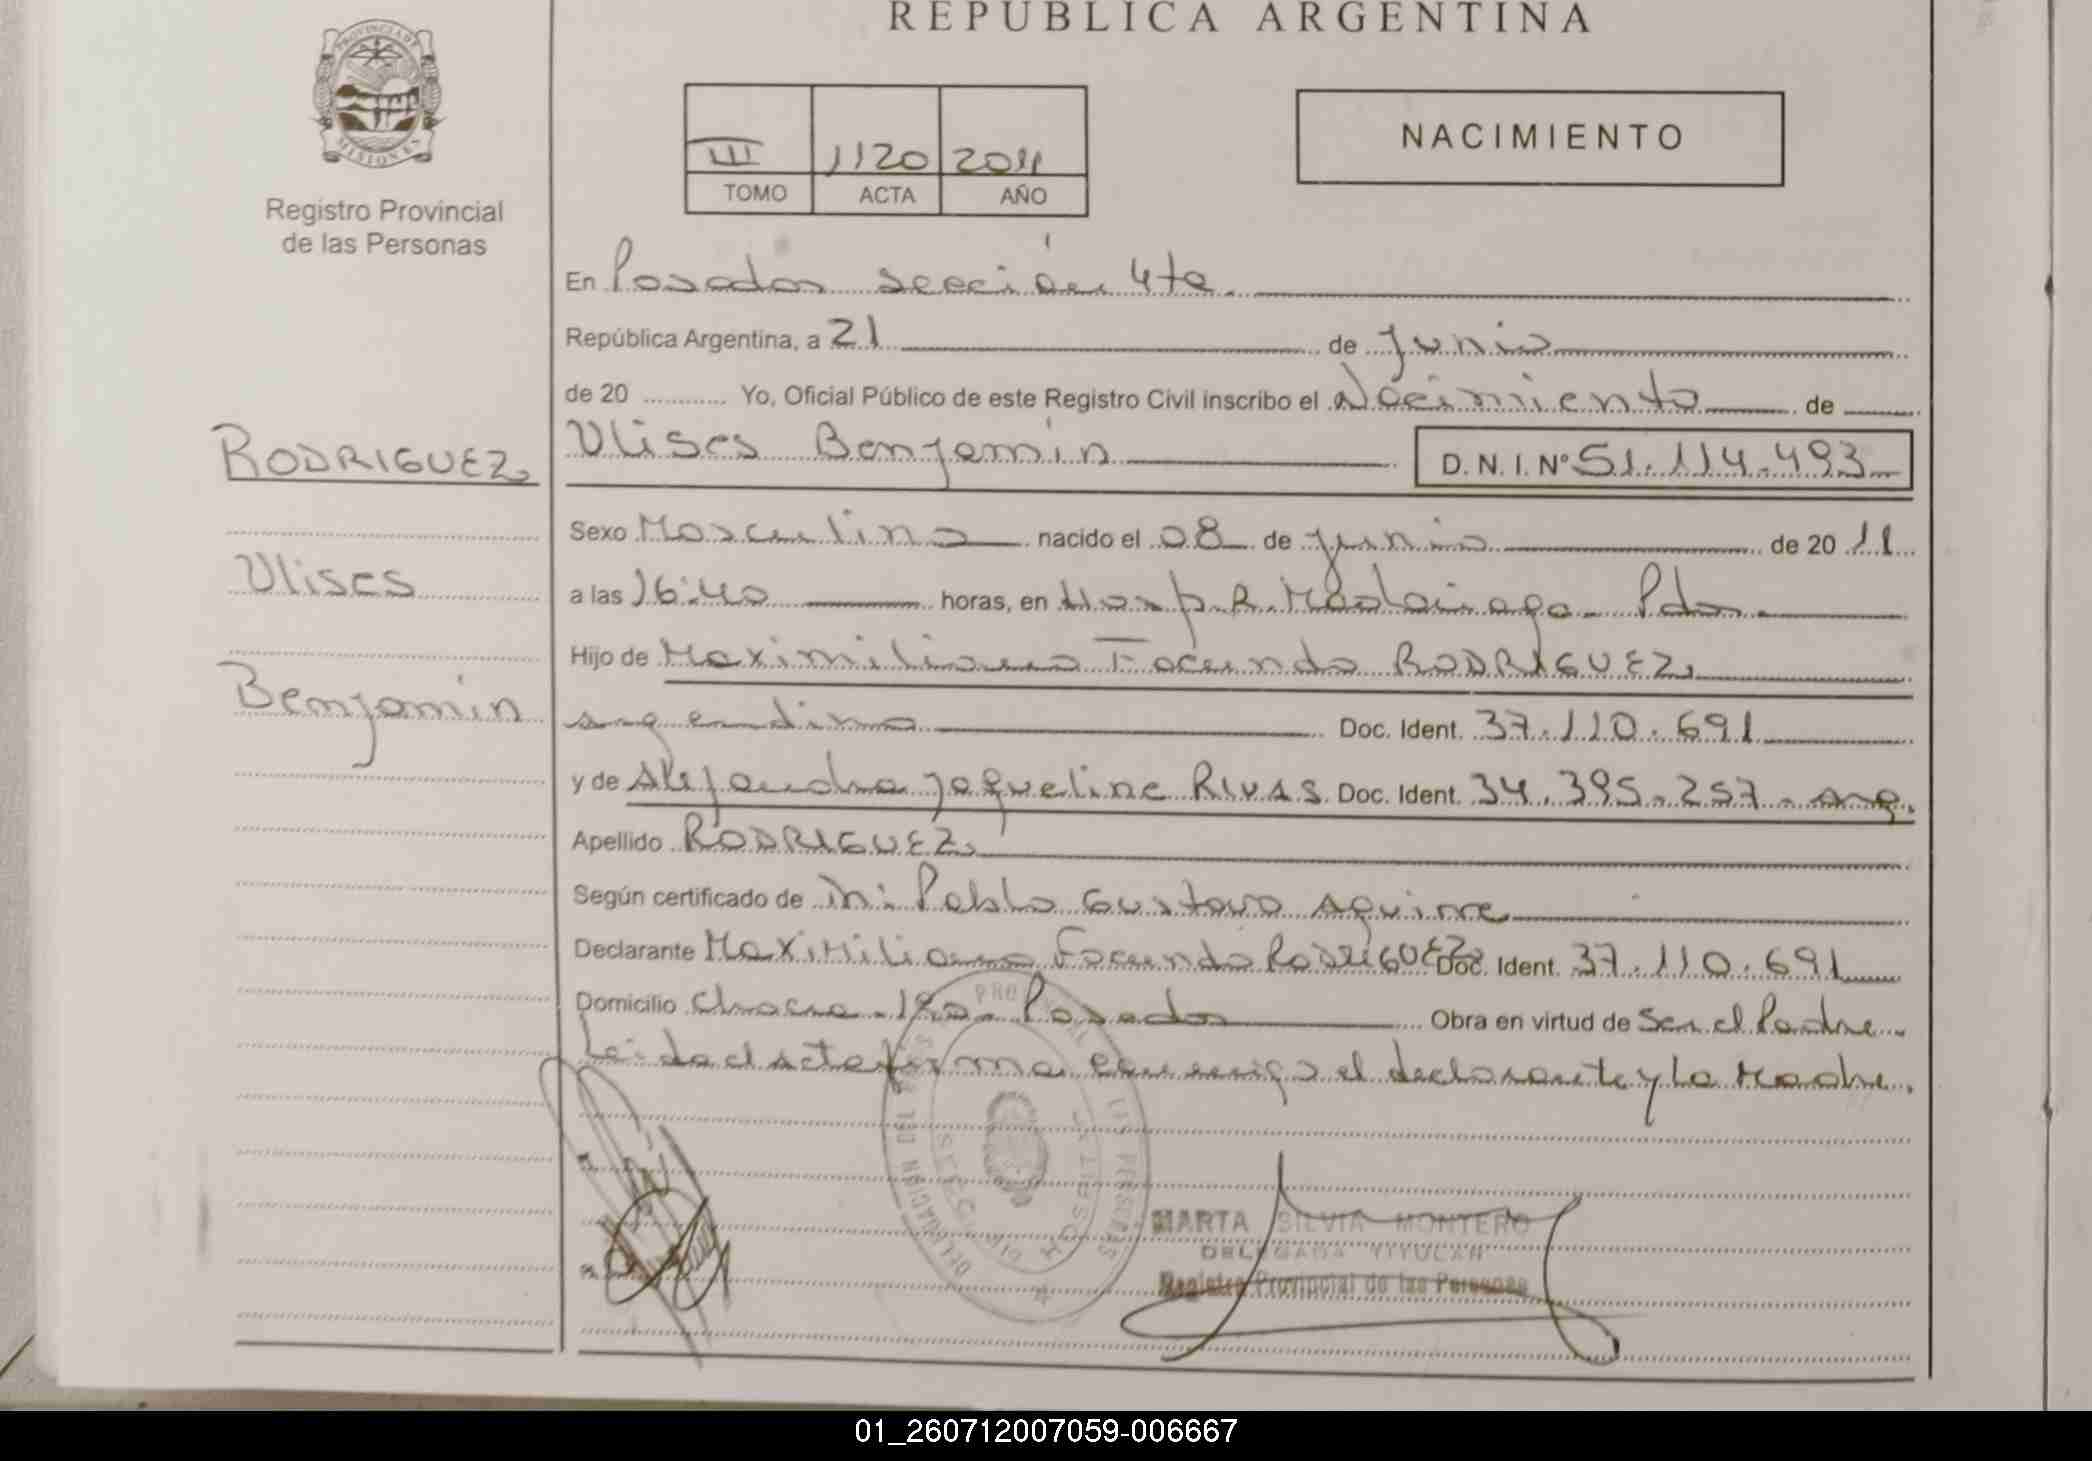 REPUBLICA ARGENTINA
PROVINCIA DE
MISIONES
Registro Provincial
de las Personas
III 1120 2011
TOMO ACTA AÑO
NACIMIENTO
En Posadas sección 4ta.
República Argentina, a 21 de Junio
de 20 ............ Yo, Oficial Público de este Registro Civil inscribo el Nacimiento de
RODRIGUEZ
Ulises Benjamín
D. N. I. Nº 51.114.493
Sexo Masculino nacido el 08 de junio de 20 11
Ulises
a las 16:40 horas, en Hosp. R. Madariaga - Pdas.
Hijo de Maximiliano Facundo RODRIGUEZ
Benjamín
argentino Doc. Ident. 37.110.691
y de Alejandra Jaqueline RIVAS Doc. Ident. 34.395.257 - arg.
Apellido RODRIGUEZ
Según certificado de Pablo Gustavo Aguirre
Declarante Maximiliano Facundo RODRIGUEZ Doc. Ident. 37.110.691
Domicilio Chacra - 190 - Posadas Obra en virtud de Ser el Padre
Leída el acta firma conmigo el declarante y la Madre.
MARTA SILVIA MONTERO
DELEGADA TITULAR
Registro Provincial de las Personas
01_260712007059-006667